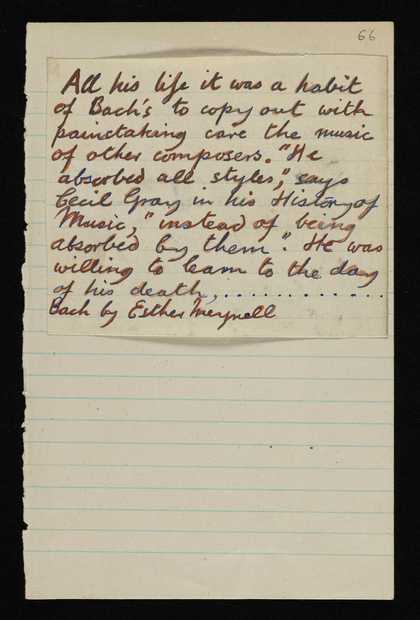 66
All his life it was a habit
of Bach's to copy out with
painctaking care the music
of other composers. "He
absorbed all styles," says
Cecil Gray in his History of
Music, "instead of being
absorbed by them". He was
willing to learn to the day
of his death, . . . . . . . . . . . . .
Bach by Esther Meynell